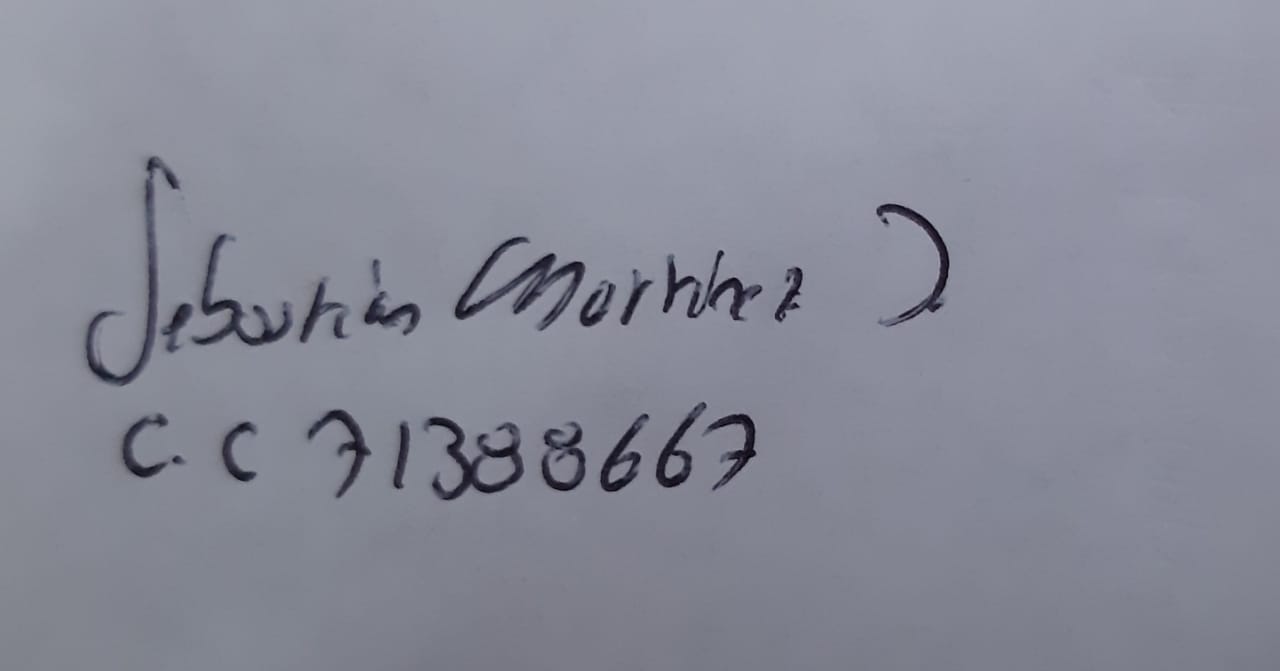 Sebastián Martínez D
C.C 71388667